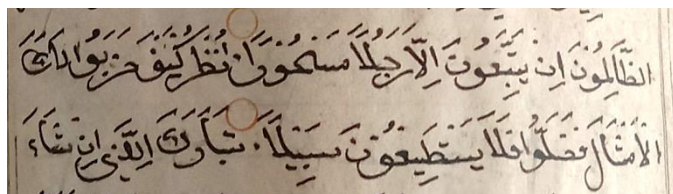 الظَّالِمُونَ اِنْ يَتَّبِعُونَ اِلَّا رَجُلًا مَسْحُورًا اُنْظُرْ كَيْفَ ضَرَبُوا لَكَ
الْاَمْثَالَ فَضَلُّوا فَلَا يَسْتَطِيعُونَ سَبِيلًا تَبَارَكَ الَّذِى اِنْ شَاءَ